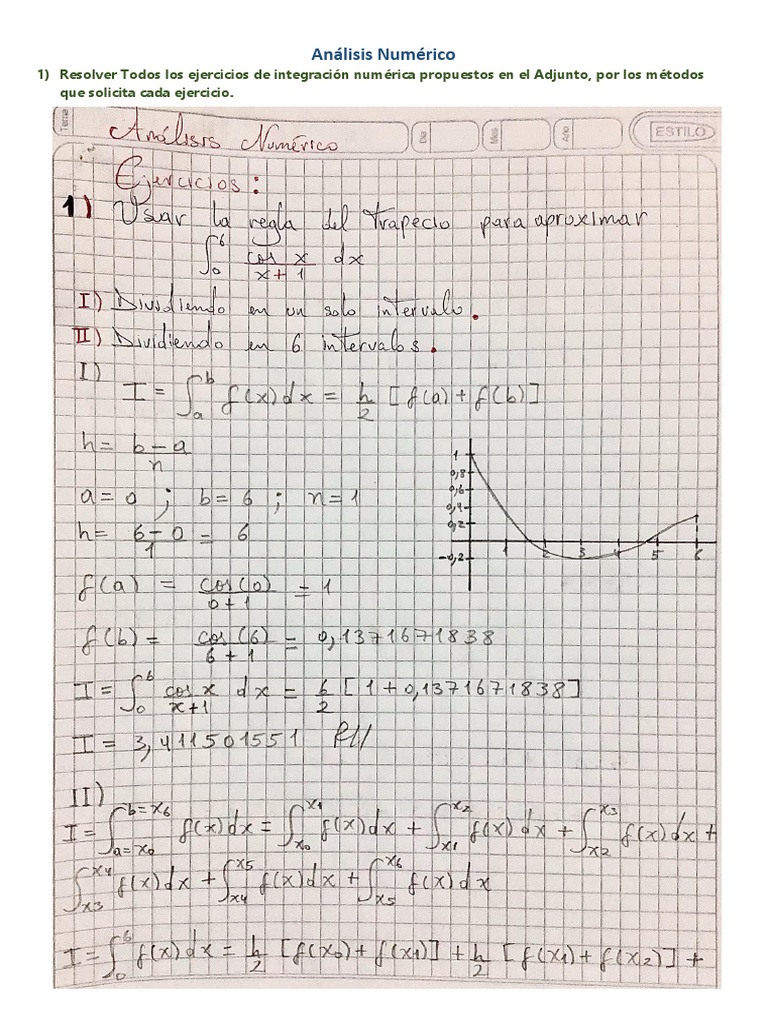 Análisis Numérico
1) Resolver Todos los ejercicios de integración numérica propuestos en el Adjunto, por los métodos
que solicita cada ejercicio.
Tema
Análisis Numérico
Día
Mes
Año
ESTILO
Ejercicios:
1) Usar la regla del Trapecio para aproximar
∫₀⁶ cos x / x+1 dx
I) Dividiendo en un solo intervalo.
II) Dividiendo en 6 intervalos.
I)
I = ∫ₐᵇ f(x)dx = h/2 [f(a)+f(b)]
h= b-a/n
a=0 ; b=6 ; n=1
h= 6-0/1 = 6
1
0,8
0,6
0,4
0,2
-0,2
1 2 3 4 5 6
f(a) = cos(0)/0+1 = 1
f(b) = cos(6)/6+1 = 0,1371671838
I = ∫₀⁶ cos x/x+1 dx = 6/2 [1+0,1371671838]
I = 3,411501551 R//
II)
I = ∫_{a=x0}^{b=x6} f(x)dx = ∫_{x0}^{x1} f(x)dx + ∫_{x1}^{x2} f(x)dx + ∫_{x2}^{x3} f(x)dx +
∫_{x3}^{x4} f(x)dx + ∫_{x4}^{x5} f(x)dx + ∫_{x5}^{x6} f(x)dx
I = ∫₀⁶ f(x)dx = h/2 [f(x0)+f(x1)] + h/2 [f(x1)+f(x2)] +